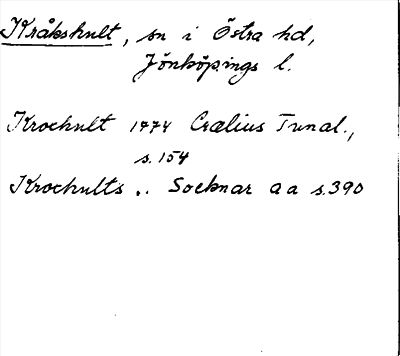 Kråkshult, sn i Östra hd,
Jönköpings l.
Krochult 1774 Crælius Tunal.,
s. 154
Krochults .. Socknar a a s. 390